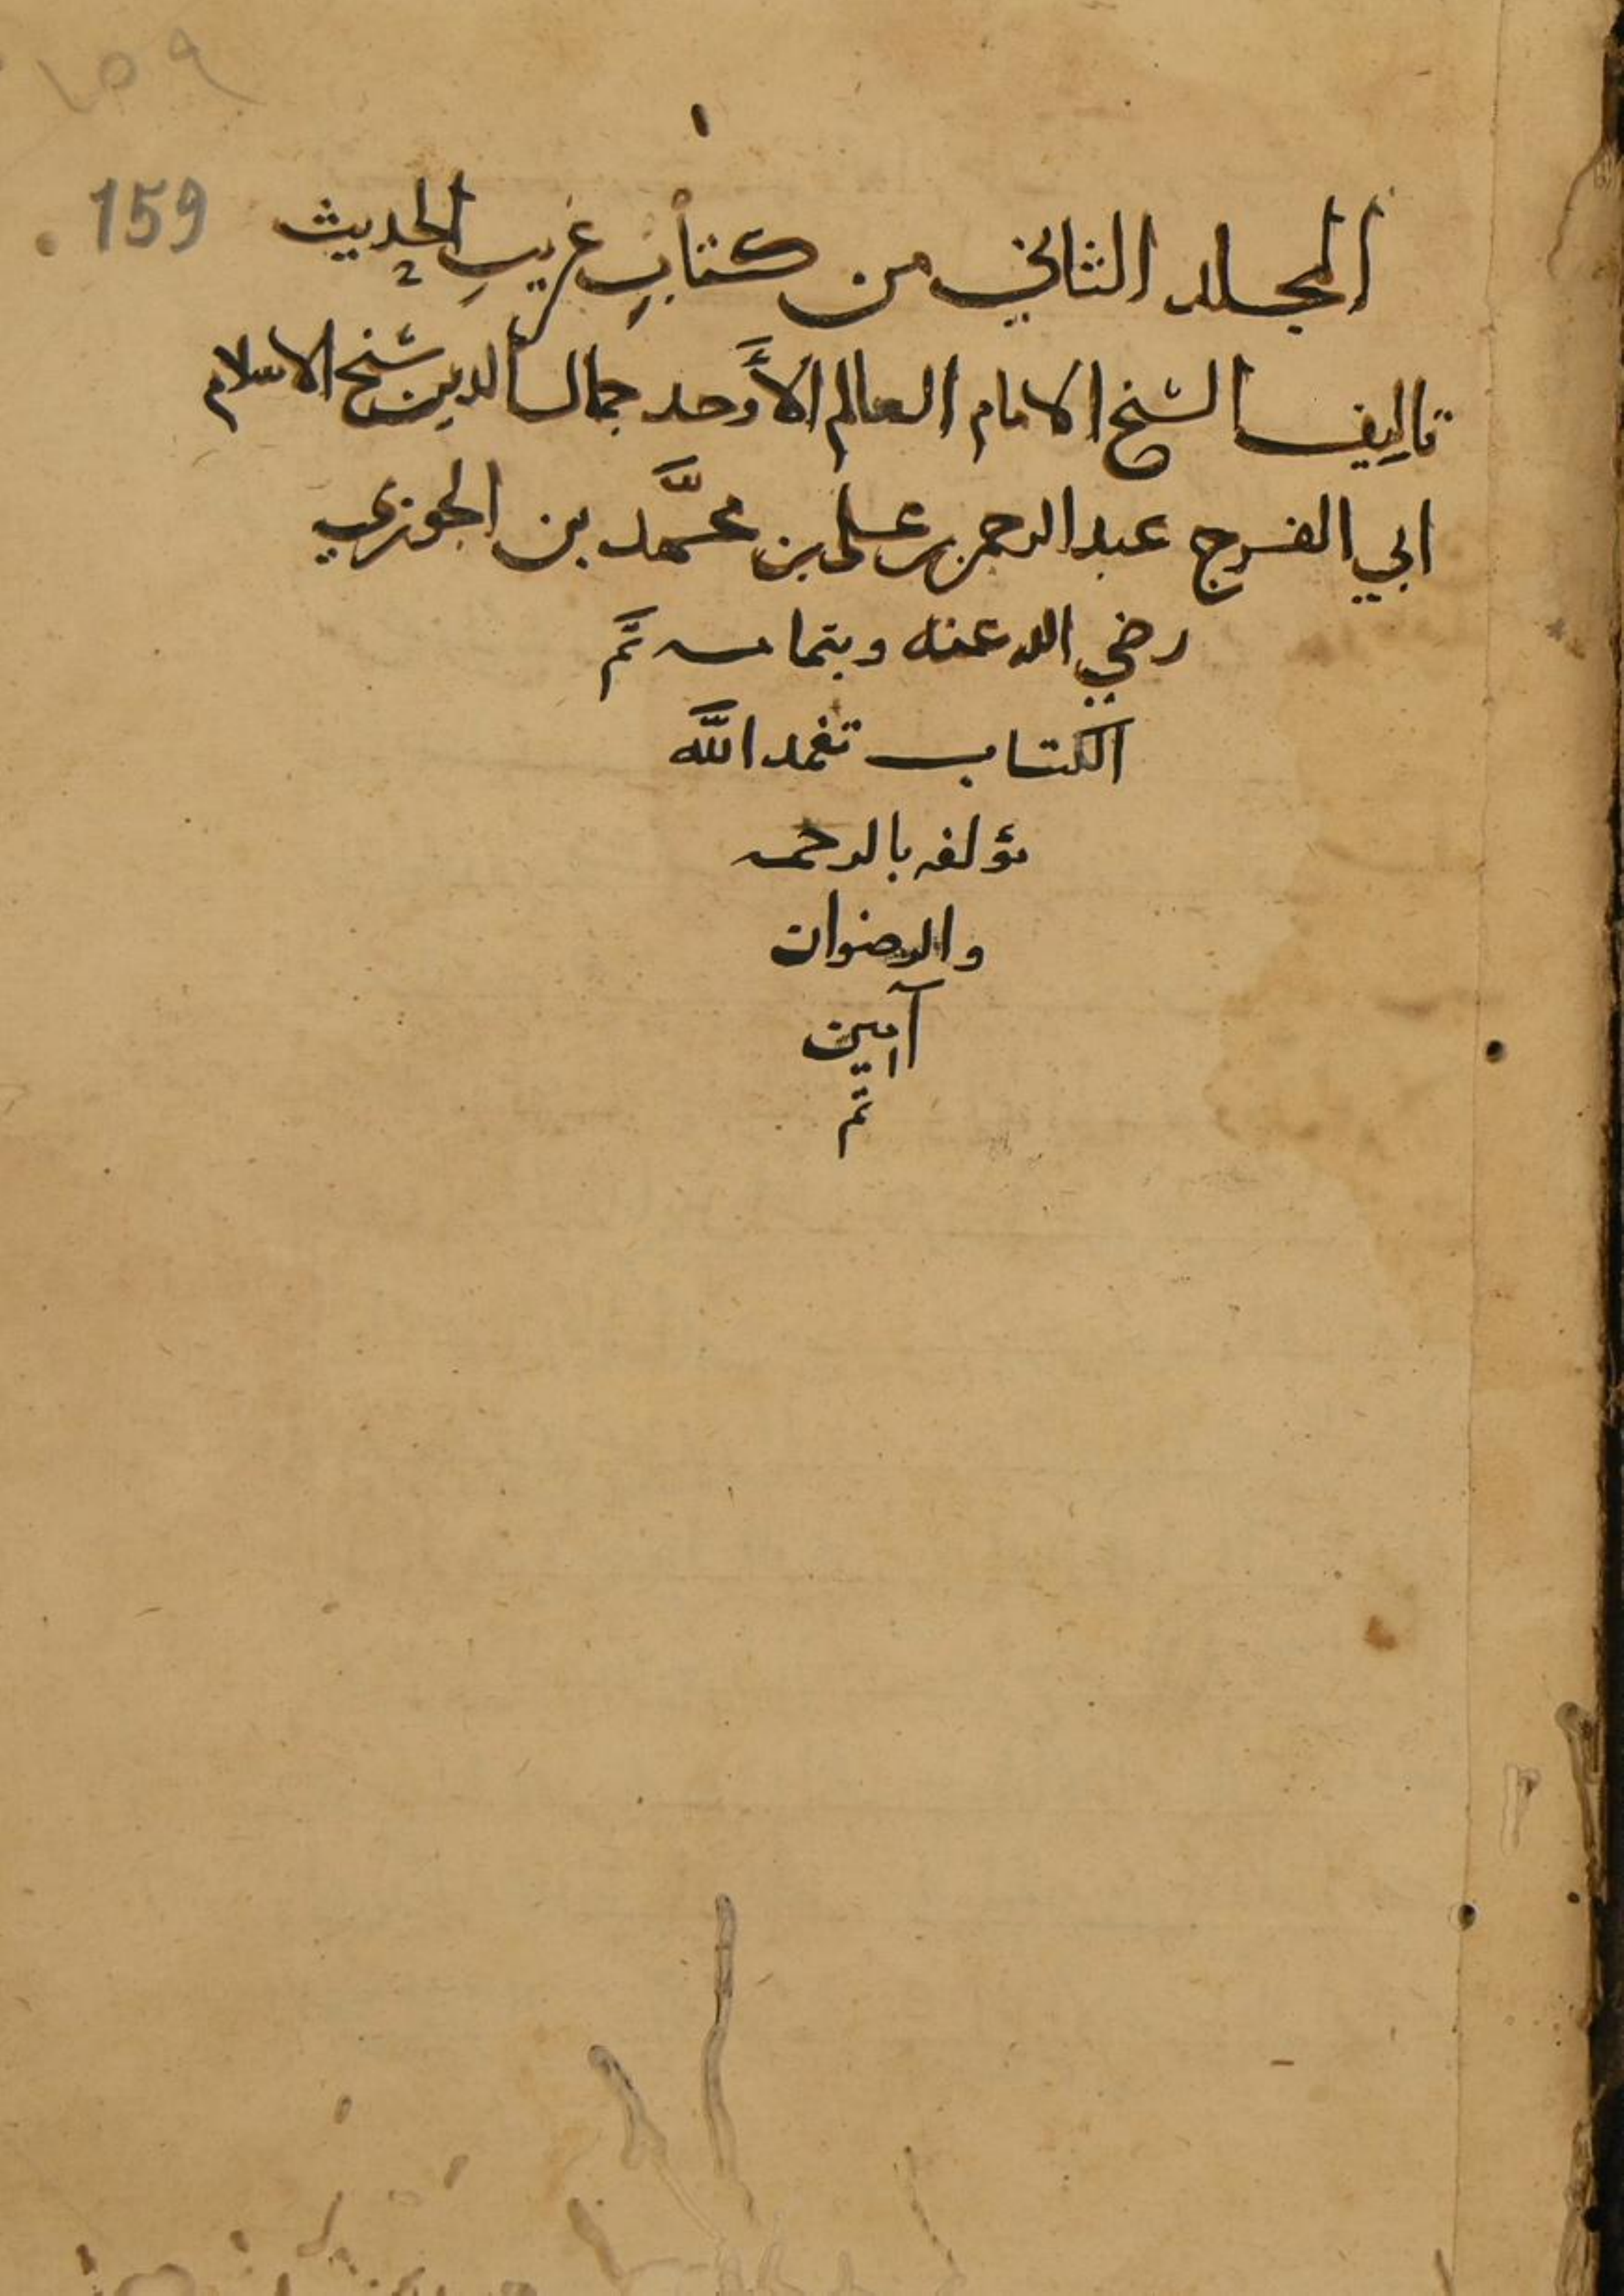 ١٥٩
١
159
المجلد الثاني من كتاب غريب الحديث
تاليف الشيخ الامام العالم الأوحد جمال الدين شيخ الاسلام
ابي الفرج عبد الرحمن بن علي بن محمَّد بن الجوزي
رضي الله عنه وبتمامه تمَّ
الكتاب تغمد اللَّه
مؤلفه بالرحمه
والرضوان
آمين
تم